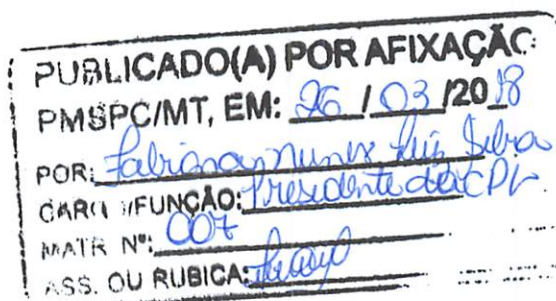 PUBLICADO(A) POR AFIXAÇÃO
PMSPC/MT, EM: 26 / 03 /2018
POR: Fabiana Nunes Luiz Silva
CARGO/FUNÇÃO: Presidente da CPL
MATR Nº: 007
ASS. OU RUBICA: